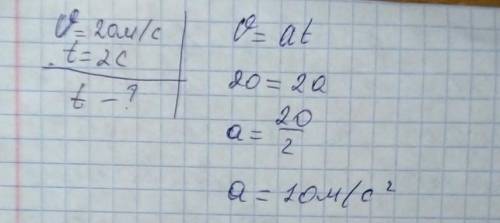 υ = 20м/с
t = 2с
t - ?
υ = at
20 = 2a
a = 20/2
a = 10м/с²